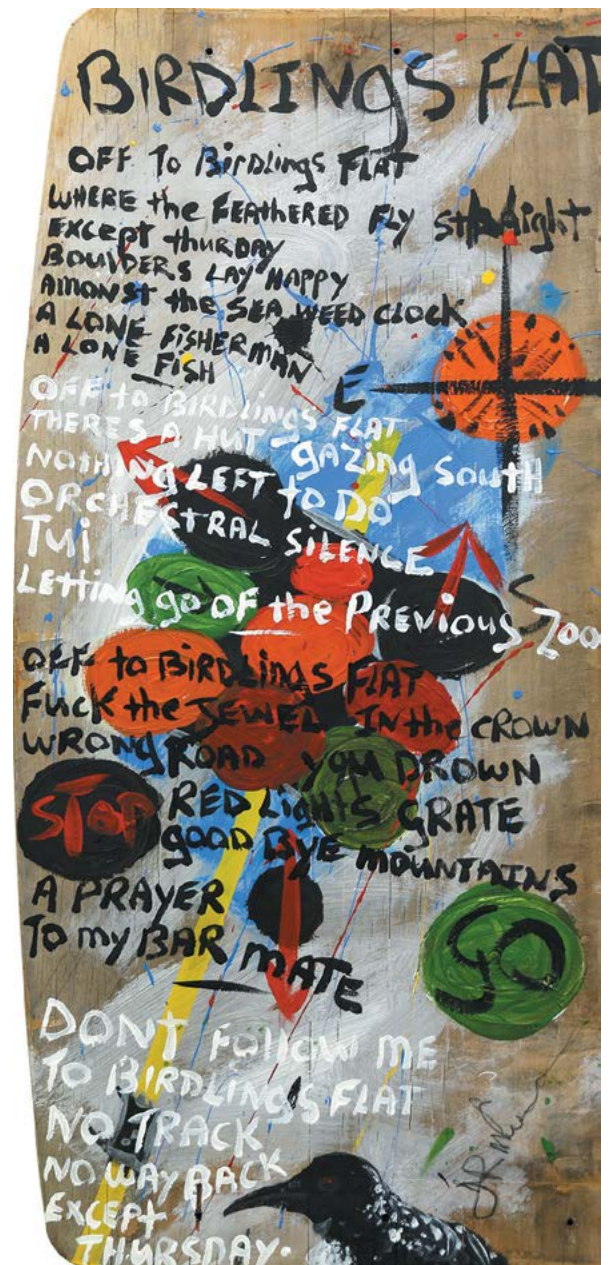 BIRDLINGS FLAT
OFF To BirDLings FLAT
WHERE the FEATHERED FLY straight
Except thurday
BOULDERS LAY HAPPY
AMONST the SEA WEED CLOCK
A LONE FISHERMAN
A LONE FISH
E
OFF to BIRDLINGS FLAT
THERES A HUT - gAZING SOUTH
NOTHING LEFT to DO
ORCHESTRAL SILENCE
Tui
LETTING go OF the PREVIOUS Zoo
S
OFF to BIRDLINGS FLAT
FUCK the JEWEL IN the CROWN
WRONG ROAD YOU DROWN
STOP
RED LIGHTS GRATE
gOOD BYE MOUNTAINS
A PRAYER
To my BAR MATE
GO
DONT FOLLOW ME
TO BIRDLINGS FLAT
NO TRACK
NO WAY BACK
EXCEPT
THURSDAY.